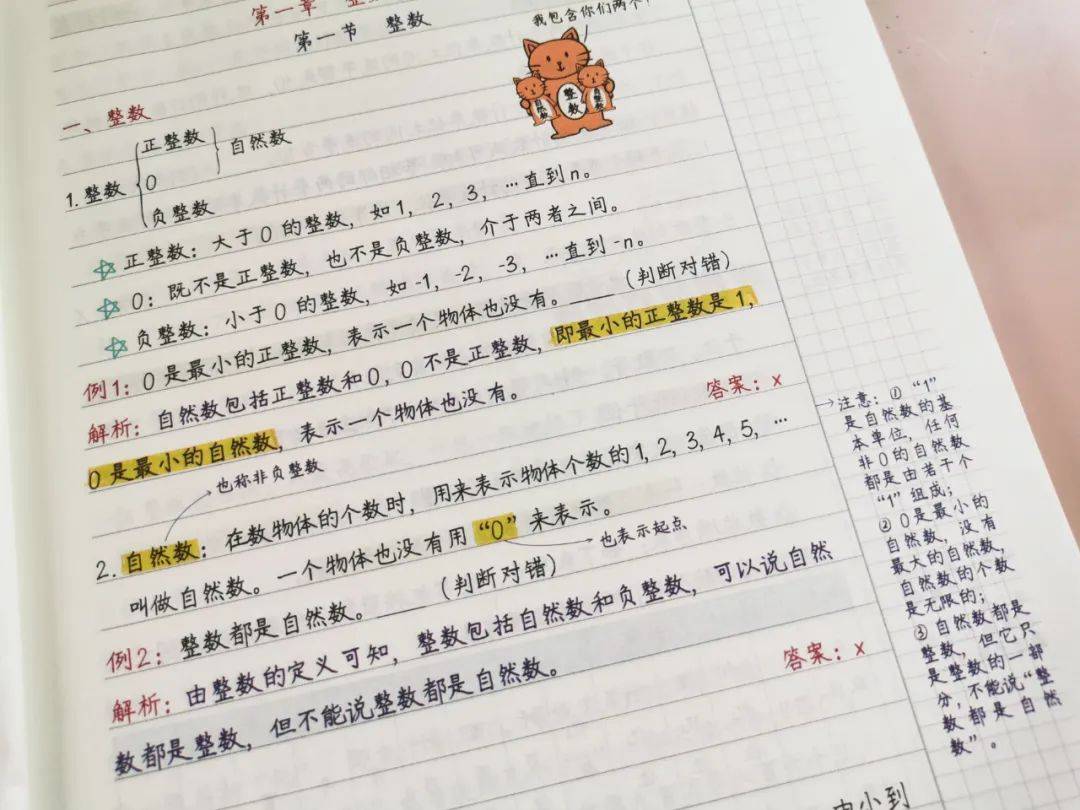 第一章 整
第一节 整数
我包含你们两个!
自然数
整数
负整数
一、整数
1. 整数
正整数
0
负整数
自然数
☆ 正整数：大于0的整数，如1，2，3，…直到n。
☆ 0：既不是正整数，也不是负整数，介于两者之间。
☆ 负整数：小于0的整数，如-1，-2，-3，…直到-n。
例1：0是最小的正整数，表示一个物体也没有。____（判断对错）
解析：自然数包括正整数和0，0不是正整数，即最小的正整数是1，
0是最小的自然数，表示一个物体也没有。 答案：x
也称非负整数
2. 自然数：在数物体的个数时，用来表示物体个数的1，2，3，4，5，…
叫做自然数。一个物体也没有用“0”来表示。
也表示起点
例2：整数都是自然数。____（判断对错）
解析：由整数的定义可知，整数包括自然数和负整数，可以说自然
数都是整数，但不能说整数都是自然数。 答案：x
→注意：①“1”
是自然数的基
本单位，任何
非0的自然数
都是由若干个
“1”组成；
②0是最小的
自然数，没有
最大的自然数，
自然数的个数
是无限的；
③自然数都是
整数，但它只
是整数的一部
分，不能说“整
数都是自然
数”。
由小到